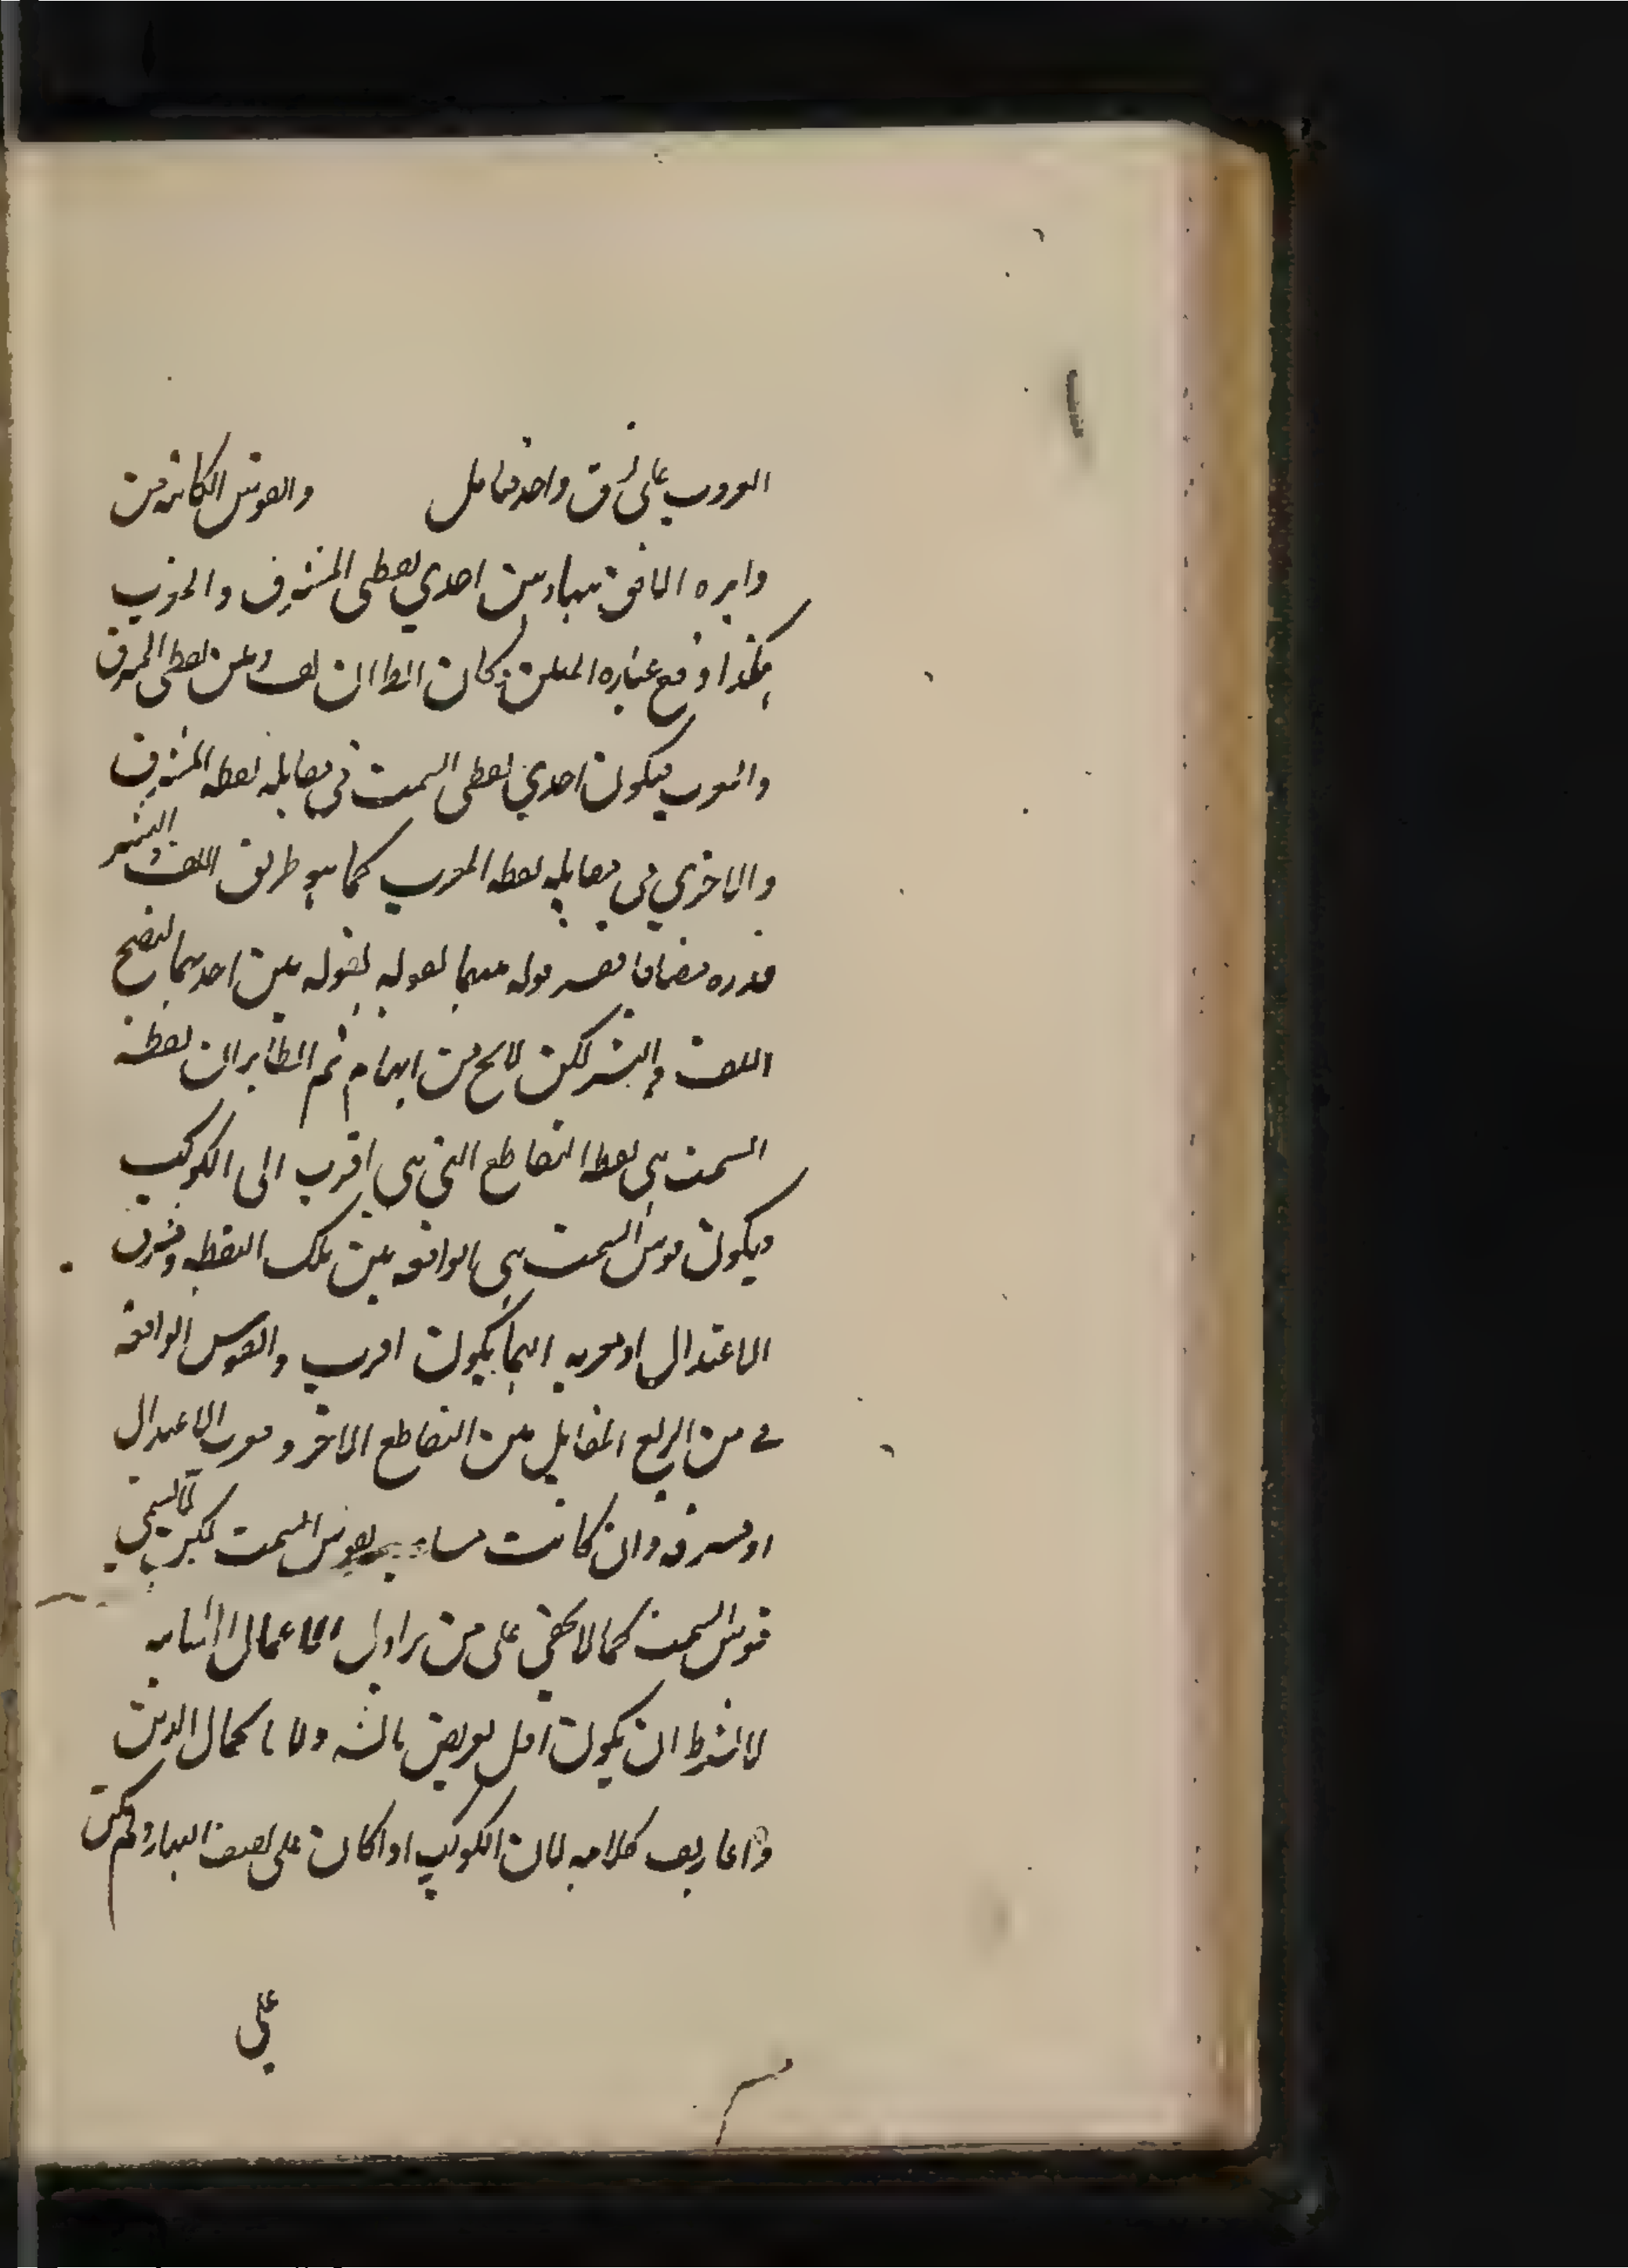 الغروب على فرق واحد فتامل والقوس الكائنة من
دايره الافق بينها وبين احدي نقطتي المشرق والمغرب
هكذا وقع عباره المتن كان الظ ان بين نقطتي المشرق
والمغرب فيكون احدي نقطتي السمت في مقابلة نقطة المشرق
والاخري في مقابلة نقطة المغرب كما هو طريق اللف والنشر
قدره مضافا قوله بينهما لقوله بقوله بين احديهما ليصح
اللف والنشر لكن لا يخ من ابهام ثم الظاهر ان نقطة
السمت هي نقطة التقاطع التي هي اقرب الى الكوكب
فيكون قوس السمت هي الواقعه بين تلك النقطه ومشرق
الاعتدال او مغربه ايهما يكون اقرب والقوس الواقعة
في من الربع المقابل بين التقاطع الاخر ومغرب الاعتدال
او مشرقه وان كانت مساويه لقوس السمت لكن لا تسمي
قوس السمت كما لا يخفي على من يزاول الاعمال
لا اشترط ان يكون اقل تعريض بالشه مولانا كمال الدين
كلامه لان الكوكب اذا كان على نصف النهار ولم يكن
علي